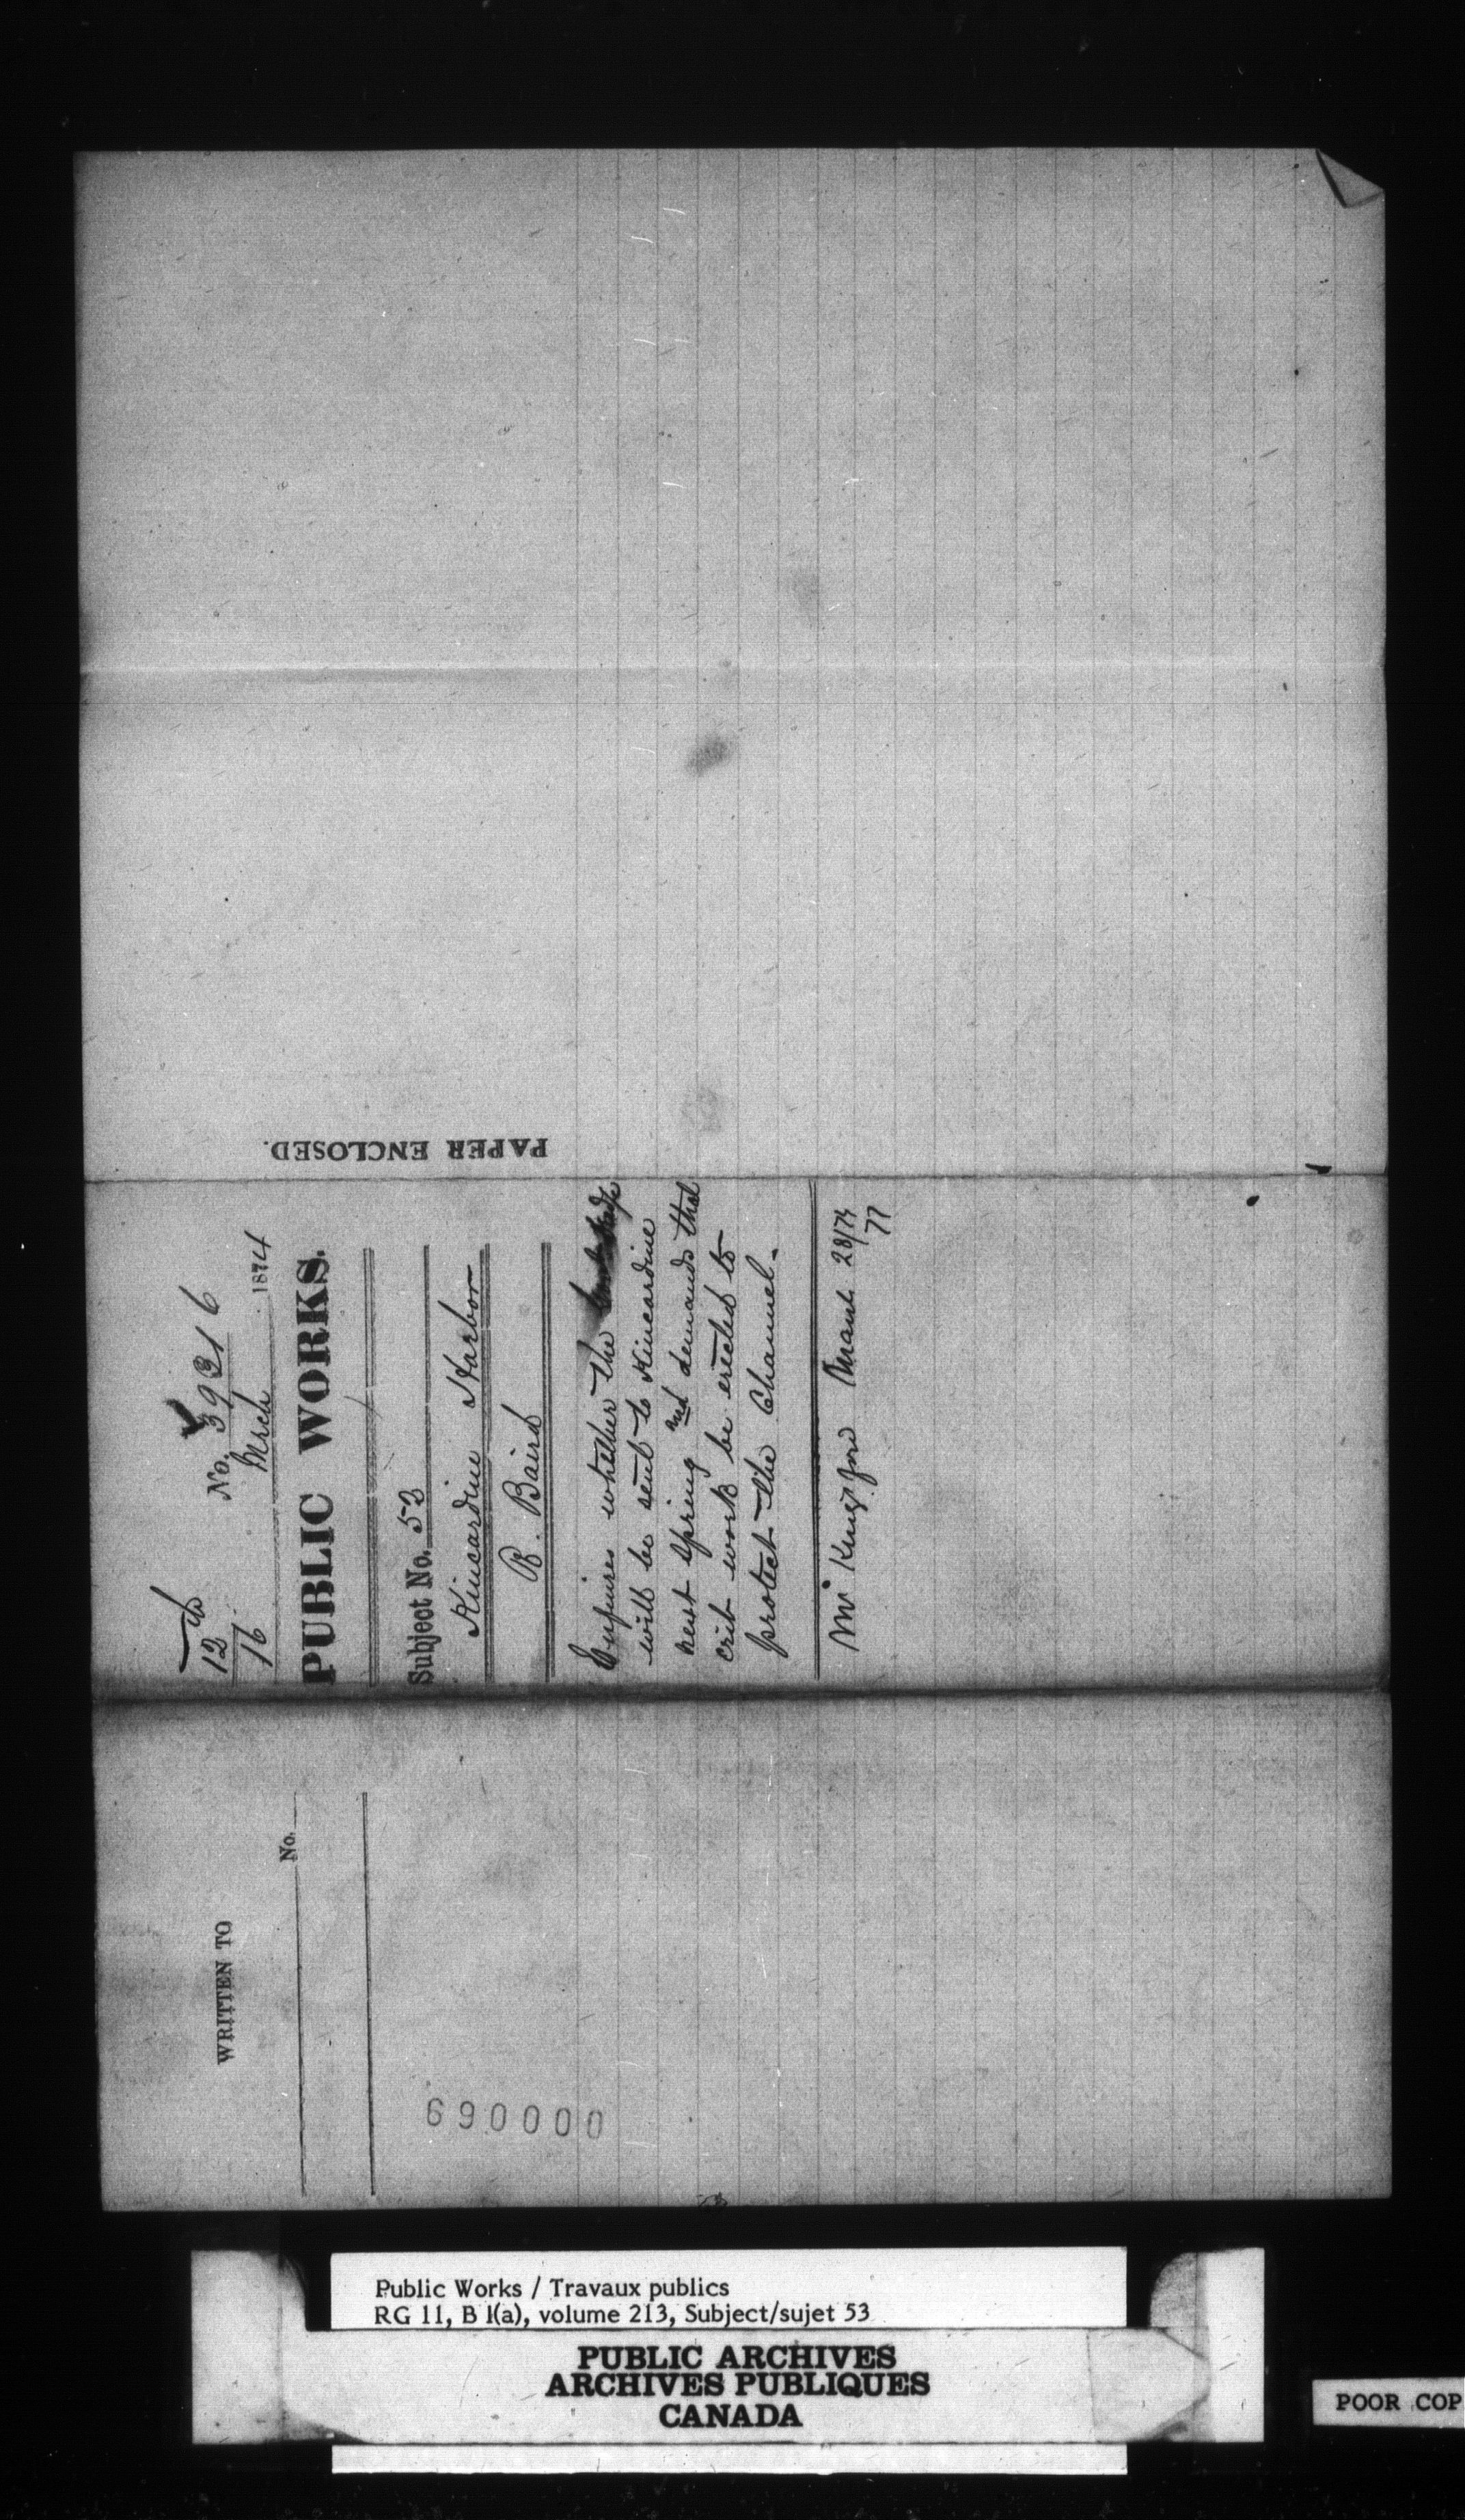 12
16
No. 39316
Mrch 1874
PUBLIC WORKS.
Subject No. 53
Kincardine Harbor
B. Baird
Enquires whether the
will be sent to Kincardine
next Spring and demands that
crib work be erected to
protect the Channel.
Mr Kingsford March 28/74
77
PAPER ENCLOSED.
WRITTEN TO
No.
690000
Public Works / Travaux publics
RG 11, B 1(a), volume 213, Subject/sujet 53
PUBLIC ARCHIVES
ARCHIVES PUBLIQUES
CANADA
POOR COP